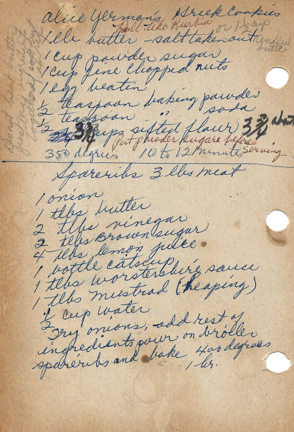 Alice Yermon's Greek Cookies
roll like Kurbia or 1 1/2 cup
1 lb. butter - salt taken out
rendered butter
1 cup powder sugar
1 cup fine chopped nuts
1 egg beaten
1/2 teaspoon baking powder
1/2 teaspoon " soda
cups sifted flour 3 3/4 about
Put powder sugar before serving
350 degrees 10 to 12 minutes
Spareribs 3 lbs meat
1 onion
1 tlbs butter
2 tlbs vinegar
2 tlbs brown sugar
4 tlbs lemon juice
1 bottle catsup
1 tlbs Worstershire sauce
1 tlbs mustrad (heaping)
1/2 cup water
Fry onions, add rest of
ingredients pour on broiler
spareribs and bake 400 degrees
1 hr.